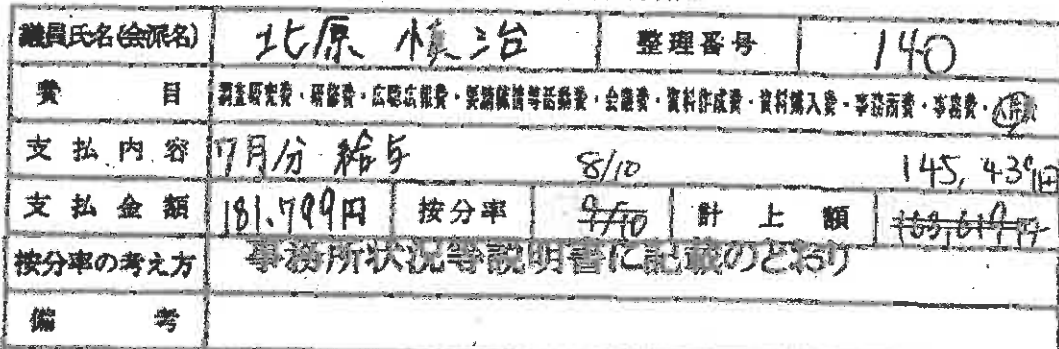 議員氏名(会派名) 北原 慎治 整理番号 140
費目 調査研究費・研修費・広聴広報費・要請陳情等活動費・会議費・資料作成費・資料購入費・事務所費・事務費・人件費
支払内容 7月分 給与 8/10 145,439円
支払金額 181,799円 按分率 9/10 計上額 163,619円
按分率の考え方 事務所状況等説明書に記載のどおり
備考